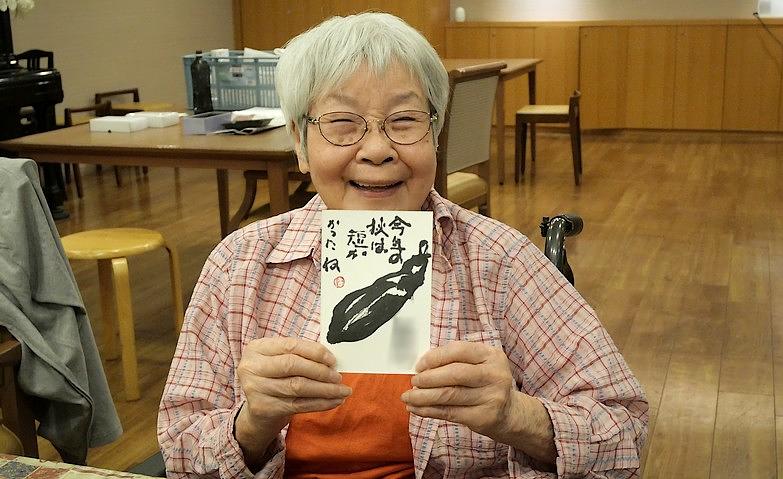 今年の
秋は
短か
かったね